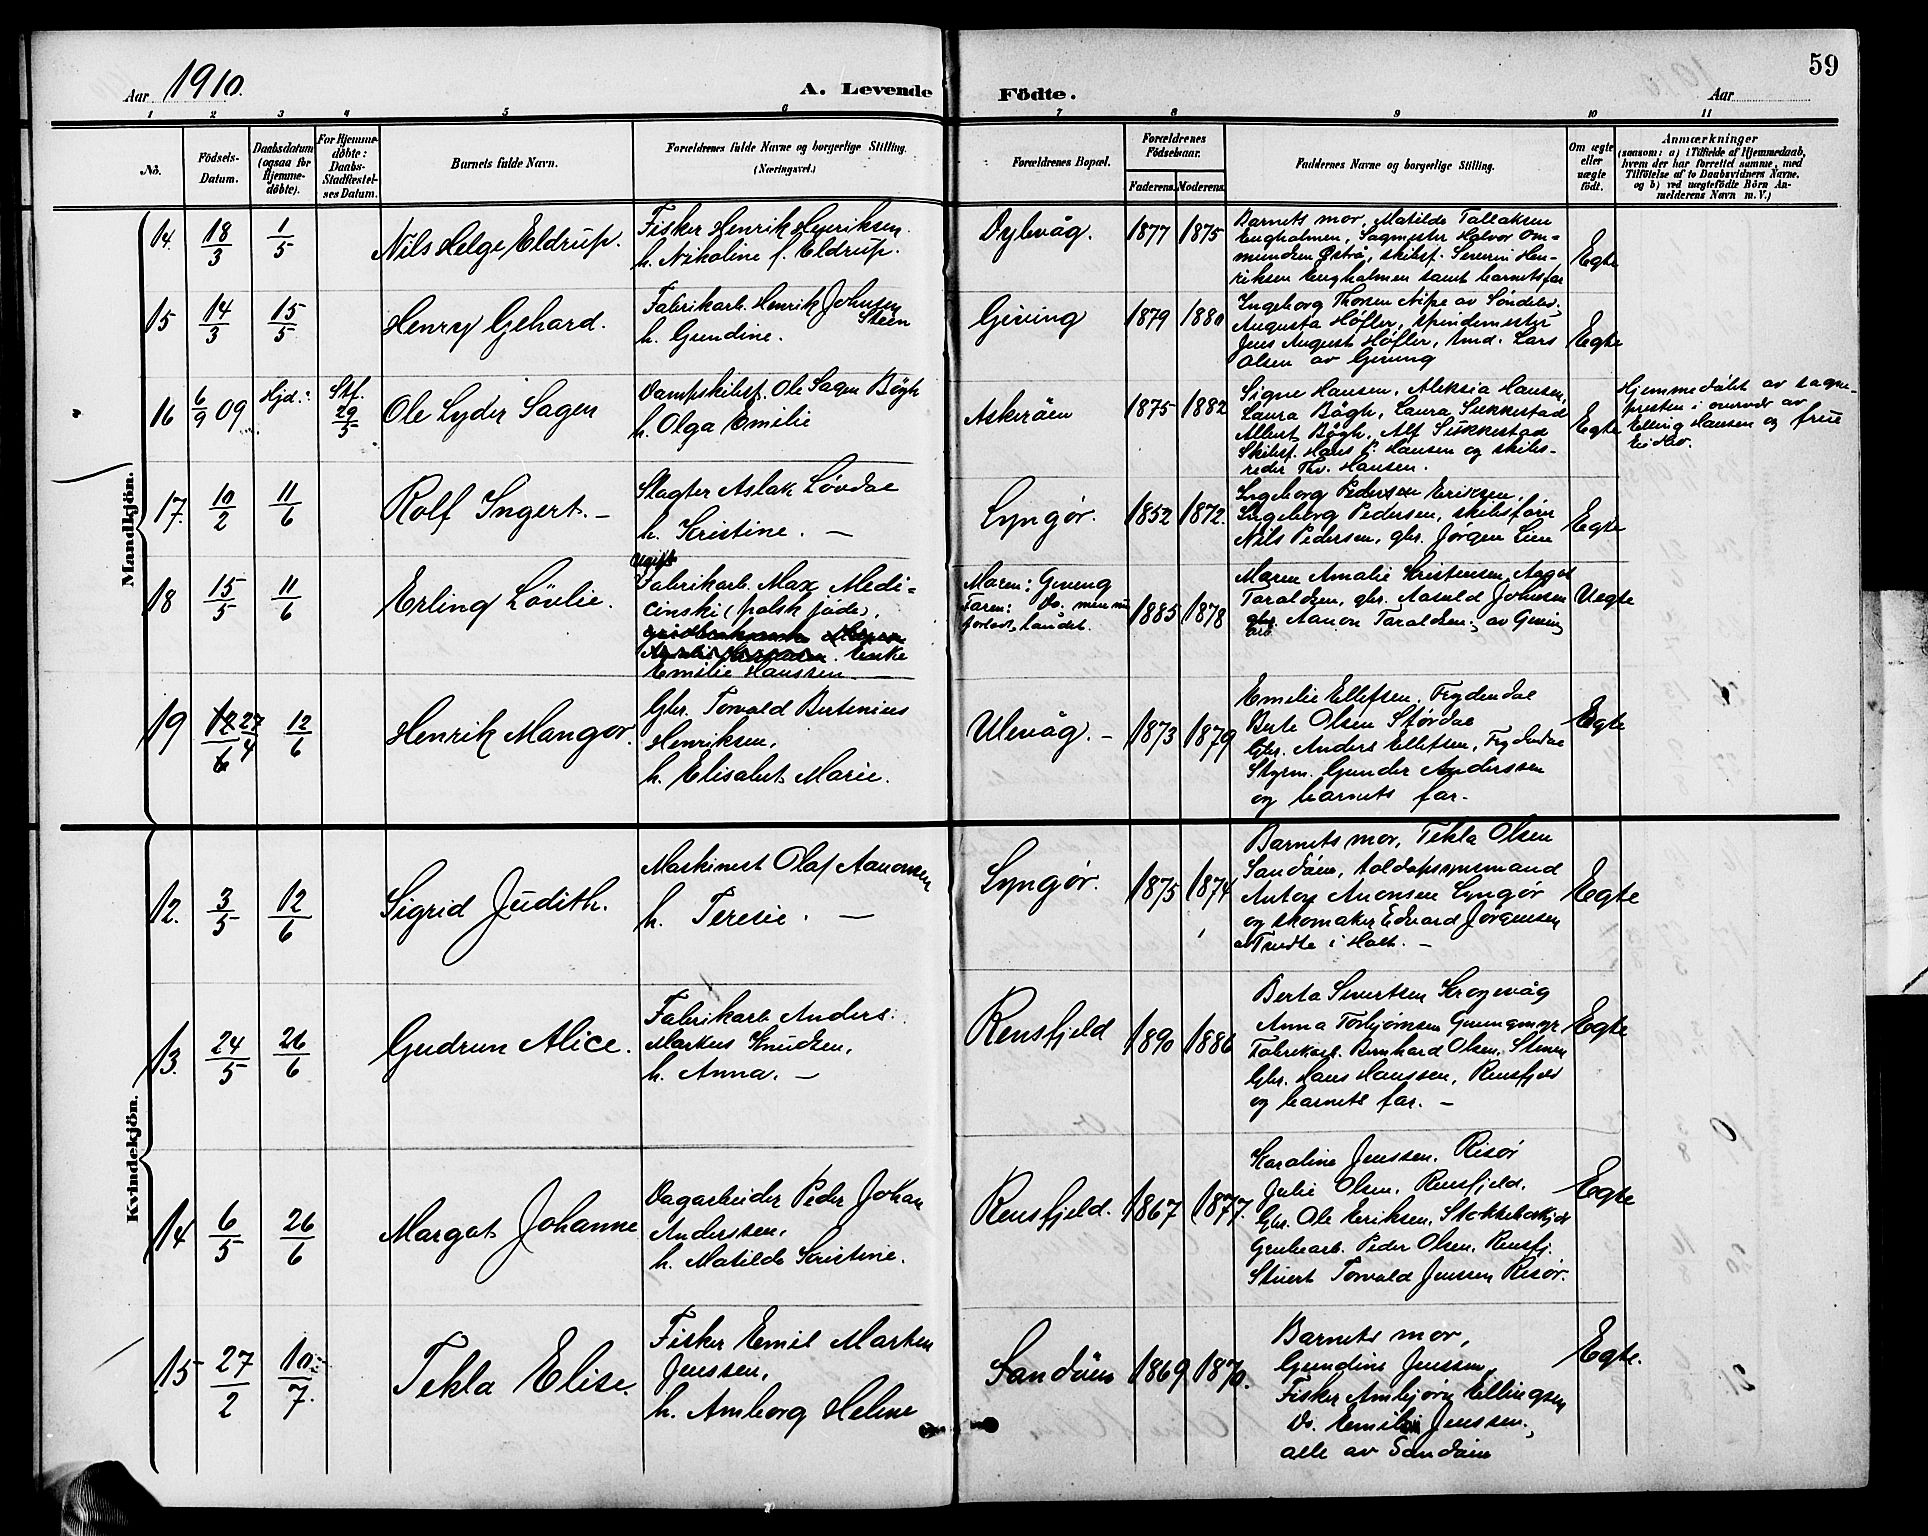 59
Aar 1910.
A. Levende Födte.
Aar
1 2 3 4 5 6 7 8 9 10 11
No.
Födsels-Datum.
Daabsdatum (ogsaa for Hjemmedöbte).
For Hjemmedöbte: Daabs-Stadfæstelses Datum.
Barnets fulde Navn.
Forældrenes fulde Navne og borgerlige Stilling. (Næringsvei.)
Forældrenes Bopæl.
Forældrenes Födselsaar.
Faderens. Moderens.
Faddernes Navne og borgerlige Stilling.
Om ægte eller uægte födt.
Anmærkninger
(saasom: a) i Tilfælde af Hjemmedaab,
hvem der har forrettet samme, med
Tilföielse af to Daabsvidners Navne.
og b) ved uægtefödte Börn An-
melderens Navn m. V.)
Mandkjön.
14. 18/3 1/5 Nils Helge Eldrup.
Fisker Henrik Henriksen.
h. Nikoline f. Eldrup.
Dybvåg. 1877 1875
Barnets mor, Matilde Tallaksen
Engholmen, Sagmester Halvor Om-
mundsen Østrå, skibsf. Severin Hen-
riksen Engholmen samt barnets far
Egte
15 14/3 15/5 Henry Gehard.
Fabrikarb. Henrik Johnsen
Steen
h. Gundine.
Giving 1879 1880
Ingeborg Thorsen Nipe av Søndeled,
Augusta Høfler, spindemester
Jens August Høfler, Lars
Olsen av Giving
Egte
16 6/9 09 Hjd. Stf. 29/5 Ole Lyder Sagen
Dampskibsf. Ole Sagen Bögh
h. Olga Emilie
Askeröen 1875 1882
Signe Hansen, Aleksia Hansen,
Laura Bögh, Laura Sukkestad
Albert Bögh, Alf Sukkestad
Skibsf. Hans P. Hansen og skibs-
reder Thv. Hansen.
Egte
Hjemmedöbt av sogne-
presten i overvær av
Elling Hansen og frue
17. 10/2 11/6 Rolf Ingert. –
Slagter Aslak Lövdal
h. Kristine. –
Lyngör. 1852 1872.
Ingeborg Pedersen Eriksen,
Ingeborg Pedersen, skibsförer
Nils Pedersen, gbr. Jörgen Lien
Egte
18 15/5 11/6 Erling Lövlie.
Ugift
Fabrikarb. Max Medi-
cinski (polsk jöde),
Enke
Emilie Hanssen –
Maren: Giving
Faren: Do. men nu
forladt landet.
1885 1878
Maren Amalie Kristensen, Aagot
Taraldsen, gbr. Aasuld Johnsen
gbr. Aanon Taraldsen, av Giving
Uegte
19 12/6 27/4 12/6 Henrik Mangor.
Gbr. Torvald Bertinius
Henriksen,
h. Elisabet Marie.
Ulevåg. – 1873 1879
Emelie Ellefsen, Frydendal
Berte Olsen Størdal
Gbr. Anders Ellefsen, Frydendal
Styrm. Gunder Anderssen
og barnets far.
Egte
Kvindekjön.
12. 3/5 12/6 Sigrid Judith.
Maskinist Olaf Aanonsen
h. Teresie. –
Lyngør. 1875 1874
Barnets mor, Tekla Olsen
Sandöen, toldopsynsmand
Anton Anonsen Lyngør
og skomaker Edvard Jørgensen
i Holt. –
Egte
13. 24/5 26/6 Gudrun Alice.
Fabrikarb. Anders
Markus Knudsen,
h. Anna. –
Rensfjeld 1890 1886
Berta Sivertsen Krogevåg
Anna Torbjørnsen
Fabrikarb. Bernhard Olsen,
Gbr. Hans Hanssen, Rensfjeld
og barnets far. –
Egte
14 6/5 26/6 Margot Johanne
Dagarbeider Peder Johan
Anderssen,
h. Matilde Kristine.
Rensfjeld. 1867 1877.
Karoline Jenssen. Risør
Julie Olsen. Rensfjeld.
Gbr. Ole Eriksen,
Grubearb. Peder Olsen, Rensfj.
Stuert Torvald Jenssen Risør.
Egte
15 27/2 10/7. Tekla Elise.
Fisker Emil Marken
Jenssen,
h. Amborg Helene
Sandöen 1869 1870.
Barnets mor,
Gundine Jenssen,
Fisker Ambjörn Ellingsen
Do. Emil Jenssen,
alle av Sandöen
Egte.